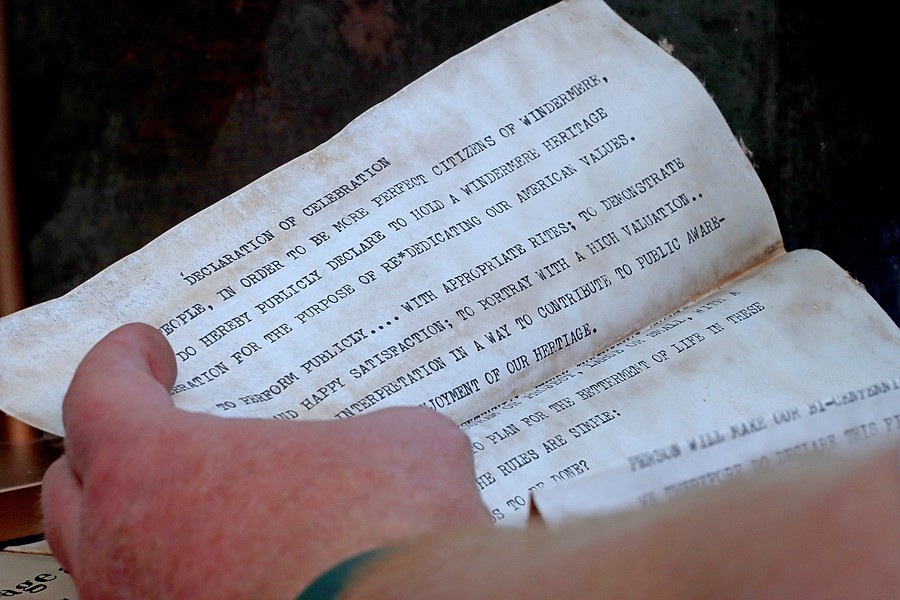 DECLARATION OF CELEBRATION
PEOPLE, IN ORDER TO BE MORE PERFECT CITIZENS OF WINDERMERE,
DO HEREBY PUBLICLY DECLARE TO HOLD A WINDERMERE HERITAGE
ERATION FOR THE PURPOSE OF RE*DEDICATING OUR AMERICAN VALUES.
TO PERFORM PUBLICLY.... WITH APPROPRIATE RITES; TO DEMONSTRATE
AND HAPPY SATISFACTION; TO PORTRAY WITH A HIGH VALUATION..
INTERPRETATION IN A WAY TO CONTRIBUTE TO PUBLIC AWARE-
JOYMENT OF OUR HERTIAGE.
WITH A
TO PLAN FOR THE BETTERMENT OF LIFE IN THESE
HE RULES ARE SIMPLE:
DS TO BE DONE?
PERSON WILL MAKE OUR BI-CENTENNI
WE THEREFORE DO DECLARE THIS
age